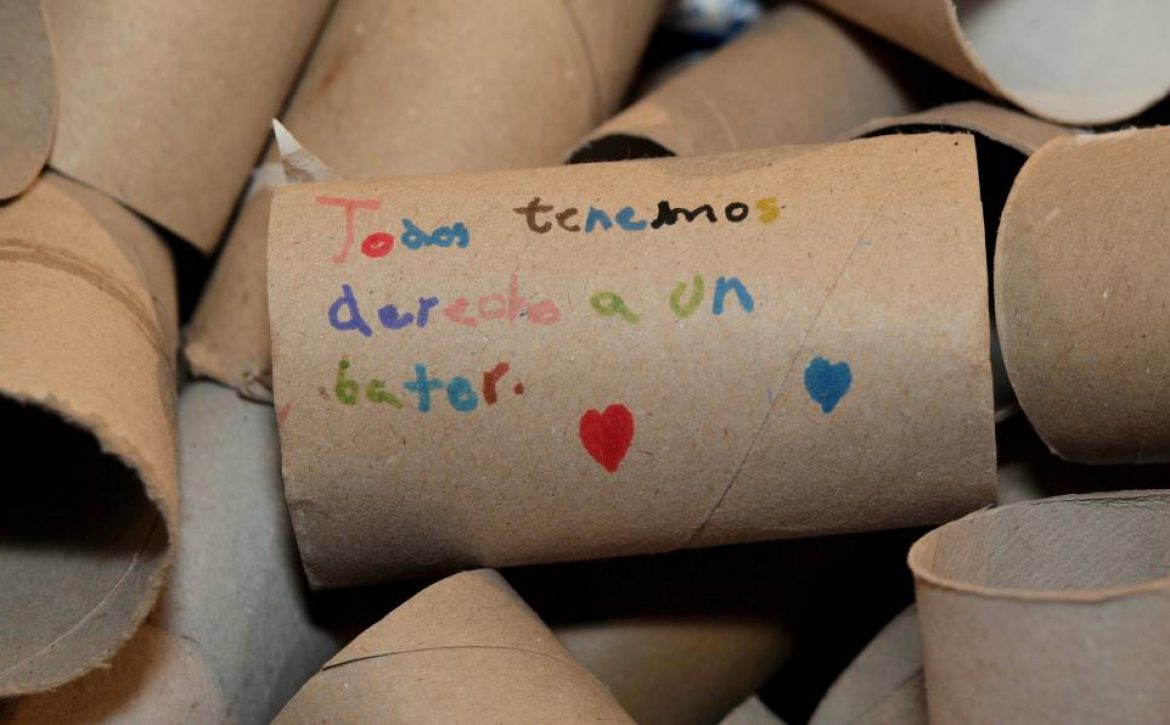 Todos tenemos
derecho a un
bater.